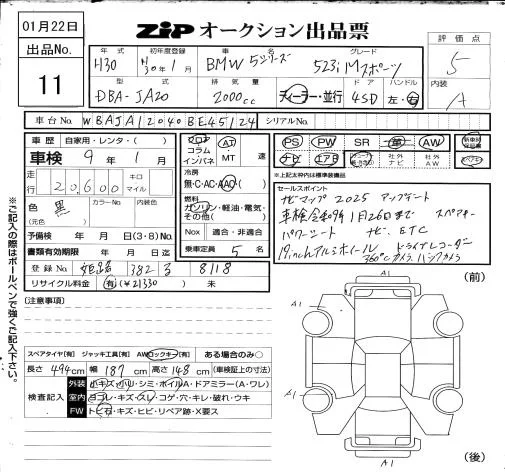 01月22日
ZIP オークション出品票
出品No.
11
年式
H30
初年度登録
H30年1月
車名
BMW 5シリーズ
グレード
523i Mスポーツ
評価点
5
型式
DBA-JA20
排気量
2000cc
ディーラー・並行
ドア
4SD
ハンドル
左・右
内装
A
車台No.
WBAJA12040BE45124
シリアルNo.
車歴 自家用・レンタ・( )
車検 9年 1月
走行 20600 キロ マイル
色 黒
(元色)
カラーNo. 内装色
予備検 年 月 日(3・8)No.
書類有効期限 年 月 日迄
登録No. 姫路 382 8118
リサイクル料金 有(¥21330) 未
フロア コラム インパネ
AT
MT 速
冷房
無・C・AC・AAC
燃料
ガソリン・軽油・電気・
その他( )
Nox 適合・非適合
乗車定員 5 名
PS PW SR 革 AW
ナビ エアB 社外ナビ 社外AW
※上記太枠内は標準装備品
セールスポイント
ナビマップ2025アップデート
車検令和9年1月26日まで スペアキー
パワーシート ナビ、ETC
19inchアルミホイール ドライブレコーダー
360°カメラ、バックカメラ
ご記入の際はボールペンで強くご記入下さい。
(注意事項)
(前)
A1
A1
A1
スペアタイヤ[有] ジャッキ工具[有] AWロックキー[有] ある場合のみ○
長さ 494cm 幅 187cm 高さ 148cm (車検証上の寸法)
検査記入
外装 小キズ・小凹・シミ・ホイルA・ドアミラー(A・ワレ)
室内 ヨゴレ・キズ・スレ・コゲ・穴・キレ・破れ・ウキ
FW トビ石・キズ・ヒビ・リペア跡・X要ス
A1
(後)